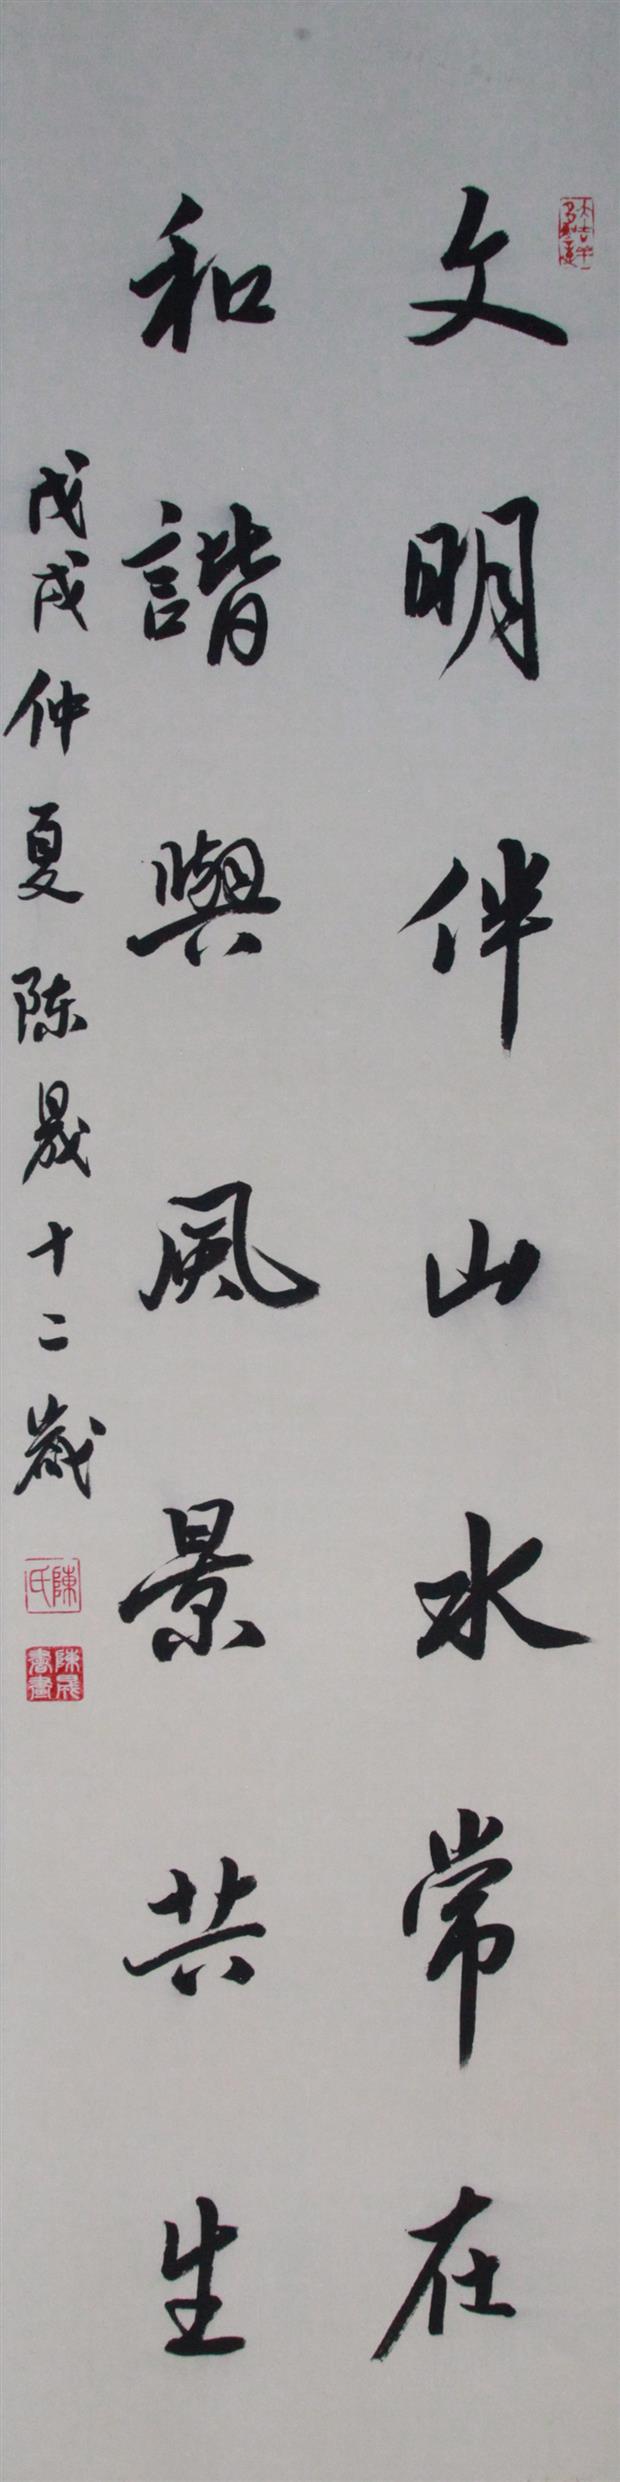 文明伴山水常在
和諧與風景共生
戊戌仲夏陈晟十二歲
陳氏
陳晟書畫